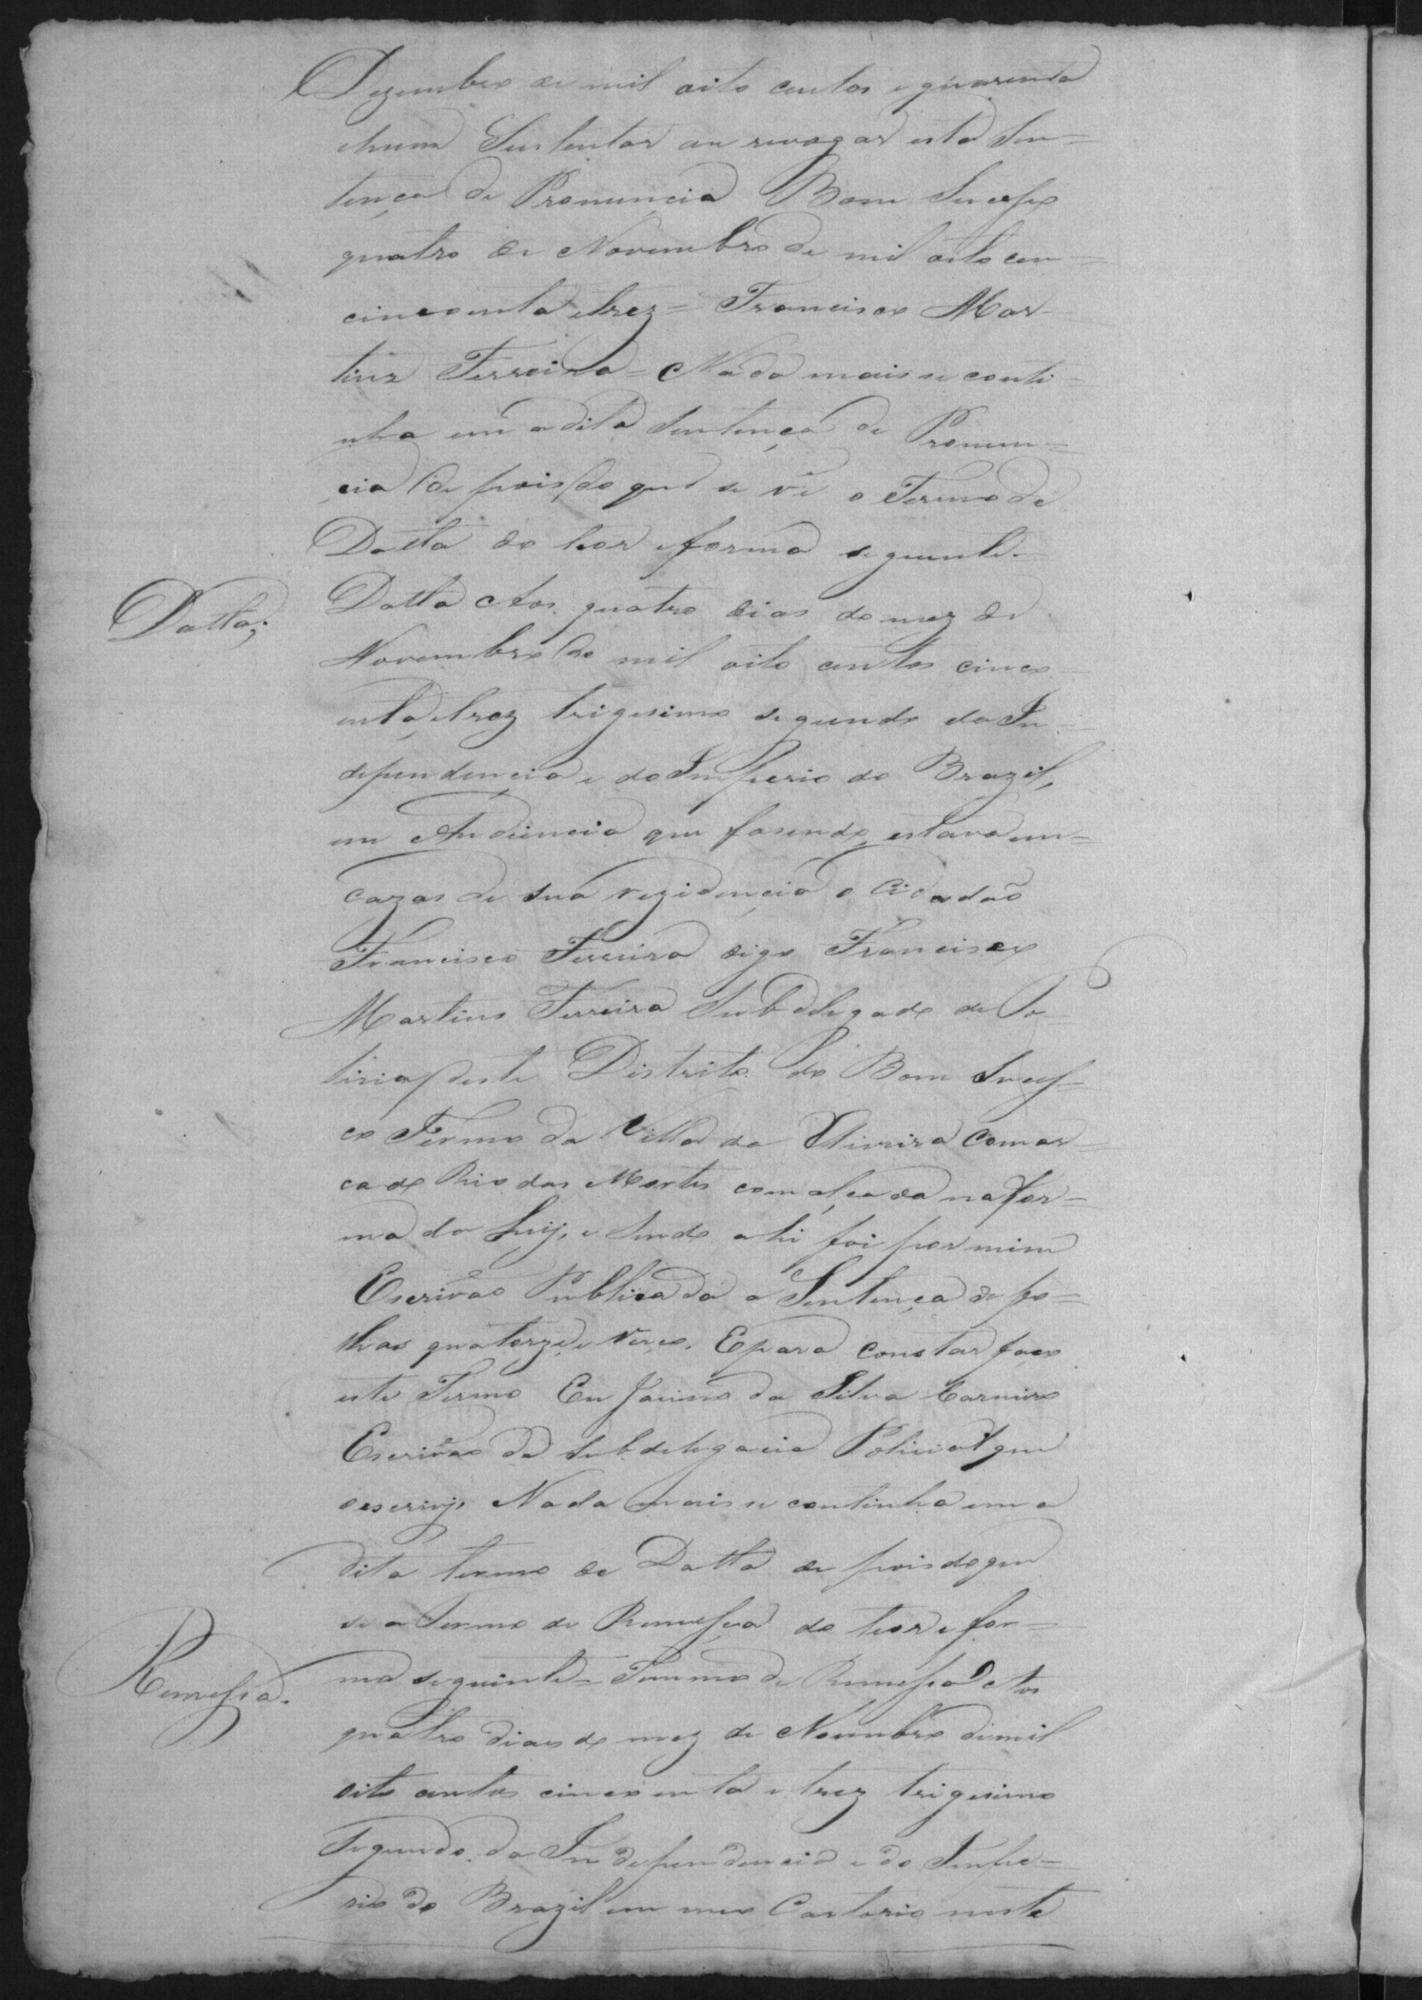 Dezembro de mil oito centos e quarenta
ehum Sustentar ou revogar esta Sen=
tença de Pronuncia Bom Sucesso
quatro de Novembro de mil oito cen=
cincoenta etrez = Francisco Mar
tins Ferreira = Nada mais se conti
nha em a dita Sentença de Pronun=
cia de pois do que se vê o Termo de
Datta do teor e forma seguinte =
Datta;
Datta Aos quatro dias do mez de
Novembro de mil oito centos cinco
enta etrez trigesimo segundo da In=
dependencia e do Imperio do Brazil,
em Audiencia que fasendo estava em=
cazas de sua rezidencia o Cidadão
Francisco Ferreira digo Francisco
Martins Ferreira Subdelegado de Po
licia deste Distrito do Bom Suces=
co Termo da Villa de Oliveira Comar=
ca do Rio das Mortes com alçada na for=
ma da Ley, e sendo ahi foi por mim
Escrivão Publicada a Sentença de fo=
lhas quatorze e verço. E para constar faço
este Termo Eu Jacinto da Silva Carneiro
Escrivão da Subdelegacia Policial que
o escrivy. Nada mais se continha em o
dito termo de Datta de pois do que
se o Termo de Remessa do teor e for=
Remessa.
ma seguinte = Termo de Remessa Aos
quatro dias do mez de Novembro de mil
oito centos cincoenta e trez trigesimo
Segundo da Independencia e do Impe=
rio do Brazil em meu Cartorio neste